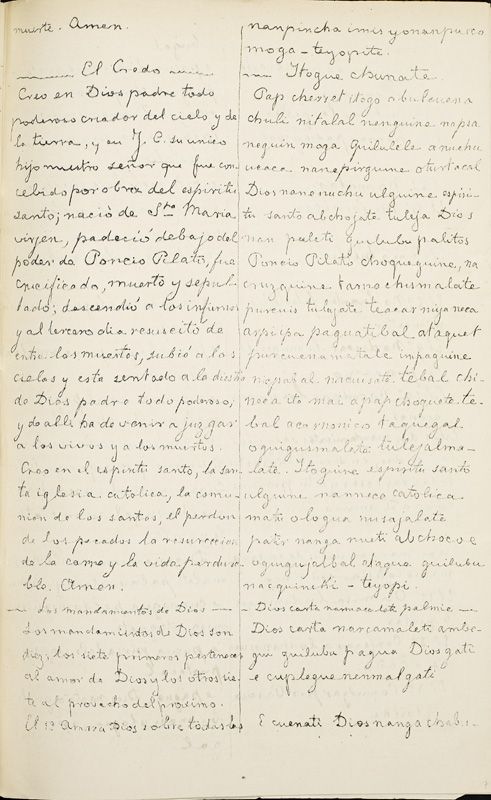 muerte. Amen.
El Credo
Creo en Dios padre todo
poderoso criador del cielo y de
la tierra, y en J. C. su unico
hijo nuestro señor que fue con
cebido por obra del espiritu
santo; nació de Sta Maria
virjen, padeció debajo del
poder de Poncio Pilato, fue
crucificado, muerto y sepul
tado; descendió a los infiernos
y al tercero dia resuscitó de
entre los muertos, subió a los
cielos y esta sentado a la diestra
de Dios padre todo poderoso;
y de alli ha de venir a juzgar
a los vivos y a los muertos.
Creo en el espiritu santo, la san
ta iglesia catolica, la comu
nion de los santos, el perdon
de los pecados la resureccion
de la carne y la vida perdura
ble. Amen.
Los mandamientos de Dios
Los mandamientos de Dios son
diez; los siete primeros pertenecen
al amor de Dios y los otros sie
te al provecho del proximo.
El 1º Amar a Dios sobre todas las
nanpincha imis y onanpusco
moga - teyopite.
Itogue chunate.
Pap cherret itogo abulcuena
chuli nitalal nenguine napsa
neguin moga Quilulele anuchu
ucaca nanepirguine oturtacal
Dios nanenuchu ulguine espiri-
tu santo alchojate tuleja Dios
nan puleti quilubu palitos
Poncio Pilato choqueguine, na
cruzguine tarnochismalate
purcuis tulejate teacar niya neca
arpipa paguatibal ataquet
purcuenamatale impaguine
napabal nacuisate. tebal chi-
neca ito mai apapchoquete. te-
bal acornonico taquegal
oquigusmalate tulejalma-
late. Itoguine espiritu santo
ulguine nanneca catolica
mate ologua nusajalate
patr nanga nueti abchoco e
oquigujalbal ataqua quilubu
nacquincki - teyopi.
Dios carta narmacalet palmie
Dios carta narcamaleti ambe-
gui quilubu pagua Dios gati
e cuplegue nenmalgati
E cuenati Dios nanga chabs-